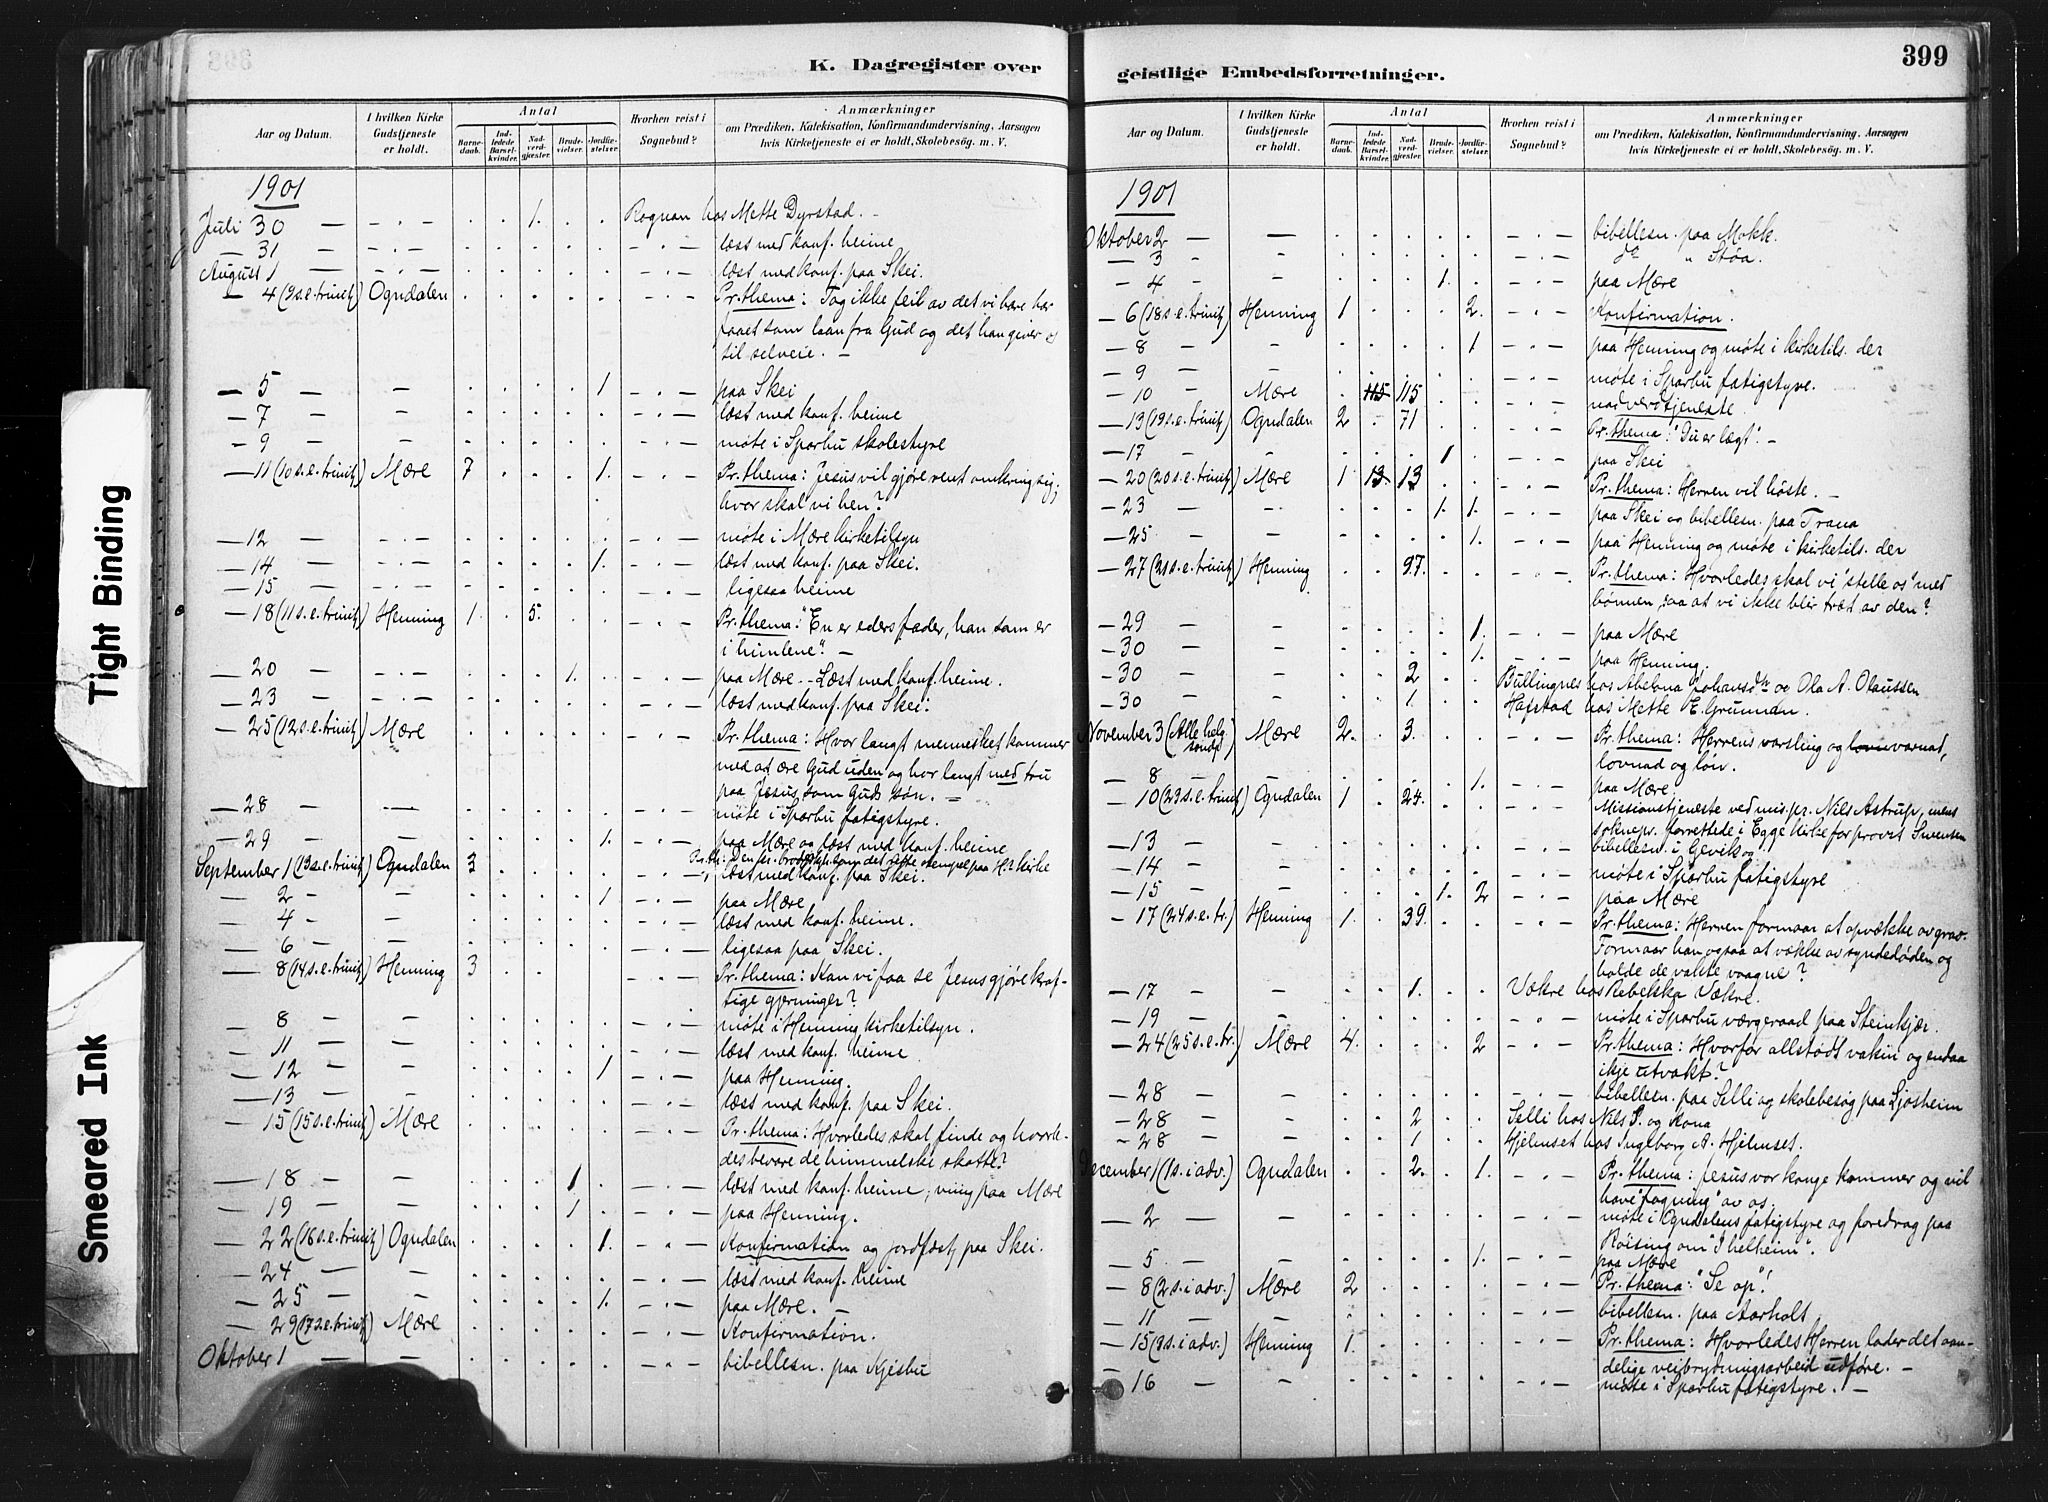 399
K. Dagregister over
Aar og Datum.
I hvilken Kirke Gudstjeneste er holdt.
Antal
Barnedaab.
Indledede Barselkvinder.
Nadverdgjæster.
Brudevielser.
Jordfæstelser.
Hvorhen reist i Sognebud?
Anmærkninger
om Prædiken, Katekisation, Konfirmandundervisning, Aarsagen
hvis Kirketjeneste ei er holdt, Skolebesøg. m. V.
1901
Juli 30 — — . — . . 1. . . Rognan hos Mette Dyrstad. —
— 31 — . — . . . . . — . — læst med konf. heime
August 1 — — . — . . . . . — . — læst med konf. paa Skei.
— 4 (9 s.e. trinit) Ogndalen . . . . . — . — Pr. thema: Tag ikke feil av det vi bare har
faaet som laan fra Gud og det han giver os
til selveie. —
— 5 — — . . . . 1 — . — paa Skei
— 7 — — . . . . . — . — læst med konf. heime
— 9 — — . . . . . — . — møte i Sparbu skolestyre
— 11 (10 s.e. trinit) Mære 7 . . . 1. — . — Pr. thema: Jesus vil gjøre rent omkring sig;
hvor skal vi hen?
— 12 — — . — . . . . . — . — møte i Mære kirketilsyn
— 14 — — . — . . . . 1. — . — læst med konf. paa Skei.
— 15 — — . — . . . . . — . — ligesaa heime
— 18 (11 s.e. trinit) Henning 1. . 5. . . — . — Pr. thema: "En er eders fader, han som er
i himlene". —
— 20 — — . — . . . 1. . — . — paa Mære. — Læst med konf. heime.
— 23 — — . — . . . . . — . — læst med konf. paa Skei.
— 25 (12 s.e. trinit) Mære . . . . . — . — Pr. thema: Hvor langt mennesket kommer
med at ære Gud uden og hor langt med tru
paa Jesus som Guds søn. —
— 28 — — . . . . . — . — møte i Sparbu fatigstyre.
— 29 — — . . . . 1. — . — paa Mære og læst med konf. heime
September 1 (13 s.e. trinit) Ogndalen 3 . . . . — . —
læst med konf. paa Skei.
— 2 — — . . . . 1 — . — paa Mære
— 4 — — . . . . . — . — læst med konf. heime.
— 6 — — . . . . . — . — ligesaa paa Skei.
— 8 (14 s.e. trinit) Henning 3 . . . . — . — Pr. thema: Kan vi faa se Jesus gjøre kraf-
tige gjerninger?
— 8 — — . . . . . — . — møte i Henning kirketilsyn.
— 11 — — . . . . . — . — læst med konf. heime
— 12 — — . . . . 1 — . — paa Henning.
— 13 — — . . . . . — . — læst med konf. paa Skei.
— 15 (15 s.e. trinit) Mære . . . . . — . — Pr. thema: Hvorledes skal finde og hvorle-
des bevare de himmelske skatte?
— 18 — — . . . 1 . — . — læst med konf. heime; viing paa Mære
— 19 — — . . . 1 . — . — paa Henning.
— 22 (16 s.e. trinit) Ogndalen . . . . 1. — . — Konfirmation og jordfæst. paa Skei.
— 24 — — . . . . . — . — læst med konf. heime
— 25 — — . . . . 1. — . — paa Mære. —
— 29 (17 s.e. trinit) Mære . . . . . — . — Konfirmation.
Oktober 1 — — . . . . . — . — bibellesn. paa Kjesbu
geistlige Embedsforretninger.
Aar og Datum.
I hvilken Kirke Gudstjeneste er holdt.
Antal
Barnedaab.
Indledede Barselkvinder.
Nadverdgjæster.
Brudevielser.
Jordfæstelser.
Hvorhen reist i Sognebud?
Anmærkninger
om Prædiken, Katekisation, Konfirmandundervisning, Aarsagen
hvis Kirketjeneste ei er holdt, Skolebesøg. m. V.
1901
Oktober 2 — — . . . . . — . — bibellesn. paa Mokk.
— 3 — — . . . . . — . — do " Støa.
— 4 — — . . . 1. . — . — paa Mære
— 6 (18 s.e. trinit) Henning 1 . . . 2. — . — Konfirmation.
— 8 — — . . . . 1 — . — paa Henning og møte i kirketils. der
— 9 — — . . . . . — . — møte i Sparbu fatigstyre.
— 10 — Mære . 115 115 . . — . — nadverdtjeneste
— 13 (19 s.e. trinit) Ogndalen 2 . 71 . . — . — Pr. thema: "Du er lægt". —
— 17 — — . . . 1 . — . — paa Skei
— 20 (20 s.e. trinit) Mære 1 13 13 . . — . — Pr. thema: Herren vil høste. —
— 23 — — . . . 1. 1. — . — paa Skei og bibellesn. paa Trana
— 25 — — . . . . 1. — . — paa Henning og møte i kirketils. der
— 27 (21 s.e. trinit) Henning . . 97. . . — . — Pr. thema: Hvorledes skal vi "stelle os" med
bønnen, saa at vi ikke blir træt av den?
— 29 — — . . . . 1. — . — paa Mære
— 30 — — . . . . 1. — . — paa Henning.
— 30 — — . . 2 . . Bullingnes hos Abelona Johansdtr og Ola A. Olaussen
— 30 — — . . 1. . . Hafstad hos Mette E. Grunnan.
November 3 (Alle helg. sønd.) Mære 2. . 3. . . — . — Pr. thema: Herrens varsling og varnad,
lovnad og løn.
— 8 — — . . . . 1. — . — paa Mære.
— 10 (23 s.e. trinit) Ogndalen 1 . 24. . . — . — Missionstjeneste ved mis.pr. Nils Astrup, mens
soknepr. forrettede i Egge kirke for provst Swensen
— 13 — — . . . . . — . — bibellesn. i Gevik
— 14 — — . . . . . — . — møte i Sparbu fatigstyre
— 15 — — . . . 1. 2 — . — paa Mære
— 17 (24 s.e. tr.) Henning 1. . 39. . . — . — Pr. thema: Herren formaar at opvække av grav.
Formaar han ogsaa at vække av syndedøden og
holde de vakte vaagne?
— 17 — — . . 1. . . Vækre hos Rebekka Vækre.
— 19 — — . . . . . — . — møte i Sparbu værgeraad paa Steinkjær.
— 24 (25 s.e. tr.) Mære 4. . . . 2 — . — Pr. thema: Hvorfor allstødt vakin og endaa
ikje utvakt?
— 28 — — . . . . . — . — bibellesn. paa Selli og skolebesøg paa Ljosheim
— 28 — — . . 2 . . Selli hos Nils S. og kona
— 28 — — . . 1 . . Hjelmset hos Ingeborg A. Hjelmset.
December 1 (1 s. i adv.) Ogndalen . . 2. . 1. — . — Pr. thema: Jesus vor konge kommer og vil
have "fagning" av os.
— 2 — — . . . . . — . — møte i Ogndalens fatigstyre og foredrag paa
Røising om "I helheim".
— 5 — — . . . . 1. — . — paa Mære
— 8 (2 s. i adv.) Mære 2 . . . . — . — Pr. thema: "Se op"!
— 11 — — . . . . . — . — bibellesn. paa Aarholt
— 15 (3 s. i adv.) Henning 1. . . . . — . — Pr. thema: Hvorledes Herren lader det aan-
delige veibrydningsarbeid udføre. —
— 16 — — . . . . . — . — møte i Sparbu fatigstyre. —
Tight Binding
Smeared Ink